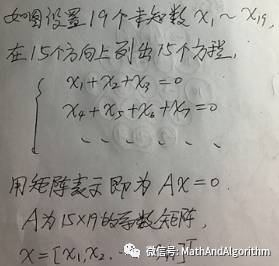 如图设置19个未知数 x₁~x₁₉,
在15个方向上列出15个方程,
x₁+x₂+x₃=0
x₄+x₅+x₆+x₇=0
- - - - - -
用矩阵表示即为 AX=0.
A为15×19的系数矩阵,
X=[x₁,x₂. ]ᵀ
微信号: MathAndAlgorithm